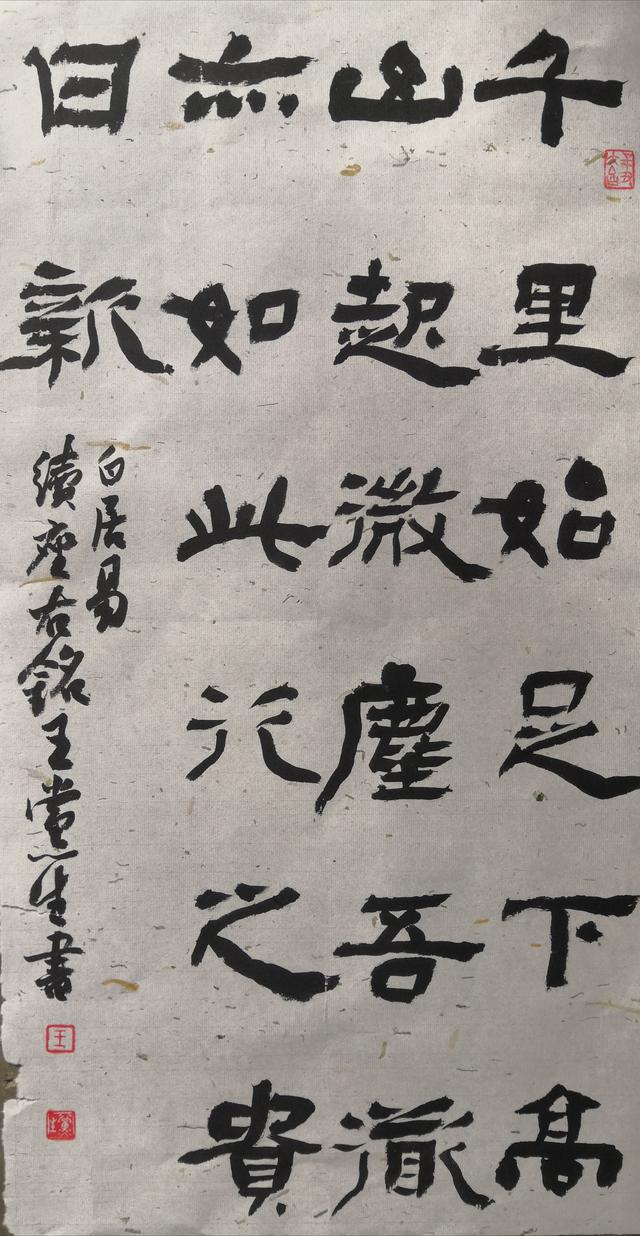 千里始足下高
山起微塵吾道
亦如此行之貴
日新
白居易
續座右銘王黨生書
王
黨生